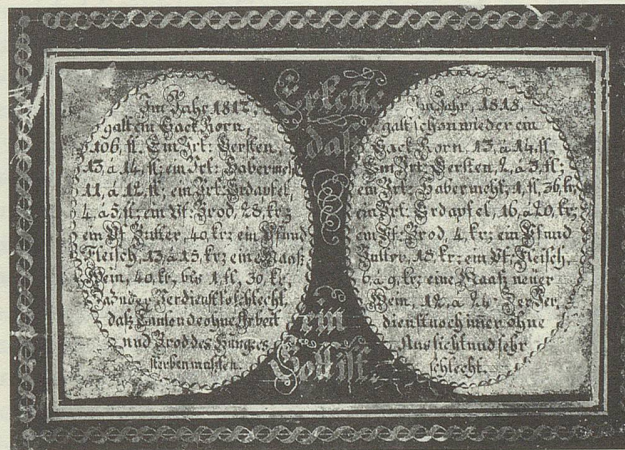 Im Jahr 1817,
galt ein Sack Korn,
106, fl. Ein Vrt: Gersten,
13, à 14, fl; ein Vrt: Habermehl,
11, à 12, fl; ein Vrt: Erdapfel,
4, à 5, fl: ein Pf: Brod, 28, kr;
ein Pf: Butter, 40, kr: ein Pfund
Fleisch, 13, à 15, kr; ein Maaß
Wein, 40, kr, bis 1, fl, 30, kr,
der Verdienst so schlecht,
daß ohne Arbeit
und Brod des Hungers
sterben mußten.
Erkeñe
daß
ein
Gott ist.
Im Jahr, 1818,
galt schon wieder ein
Sack Korn, 13, à 14, fl,
Ein Vrt: Gersten, 2, à 3, fl;
ein Vrt: Habermehl, 1, fl, 36, kr,
ein Vrt: Erdapfel, 16, à 20, kr;
ein Pf: Brod, 4, kr; ein Pfund
Butter, 18, kr: ein Pf, Fleisch,
à 9, kr; eine Maaß neüer
Wein, 12, à 24. Der Ver,
dienst noch im̃er ohne
Aussicht und sehr
schlecht.